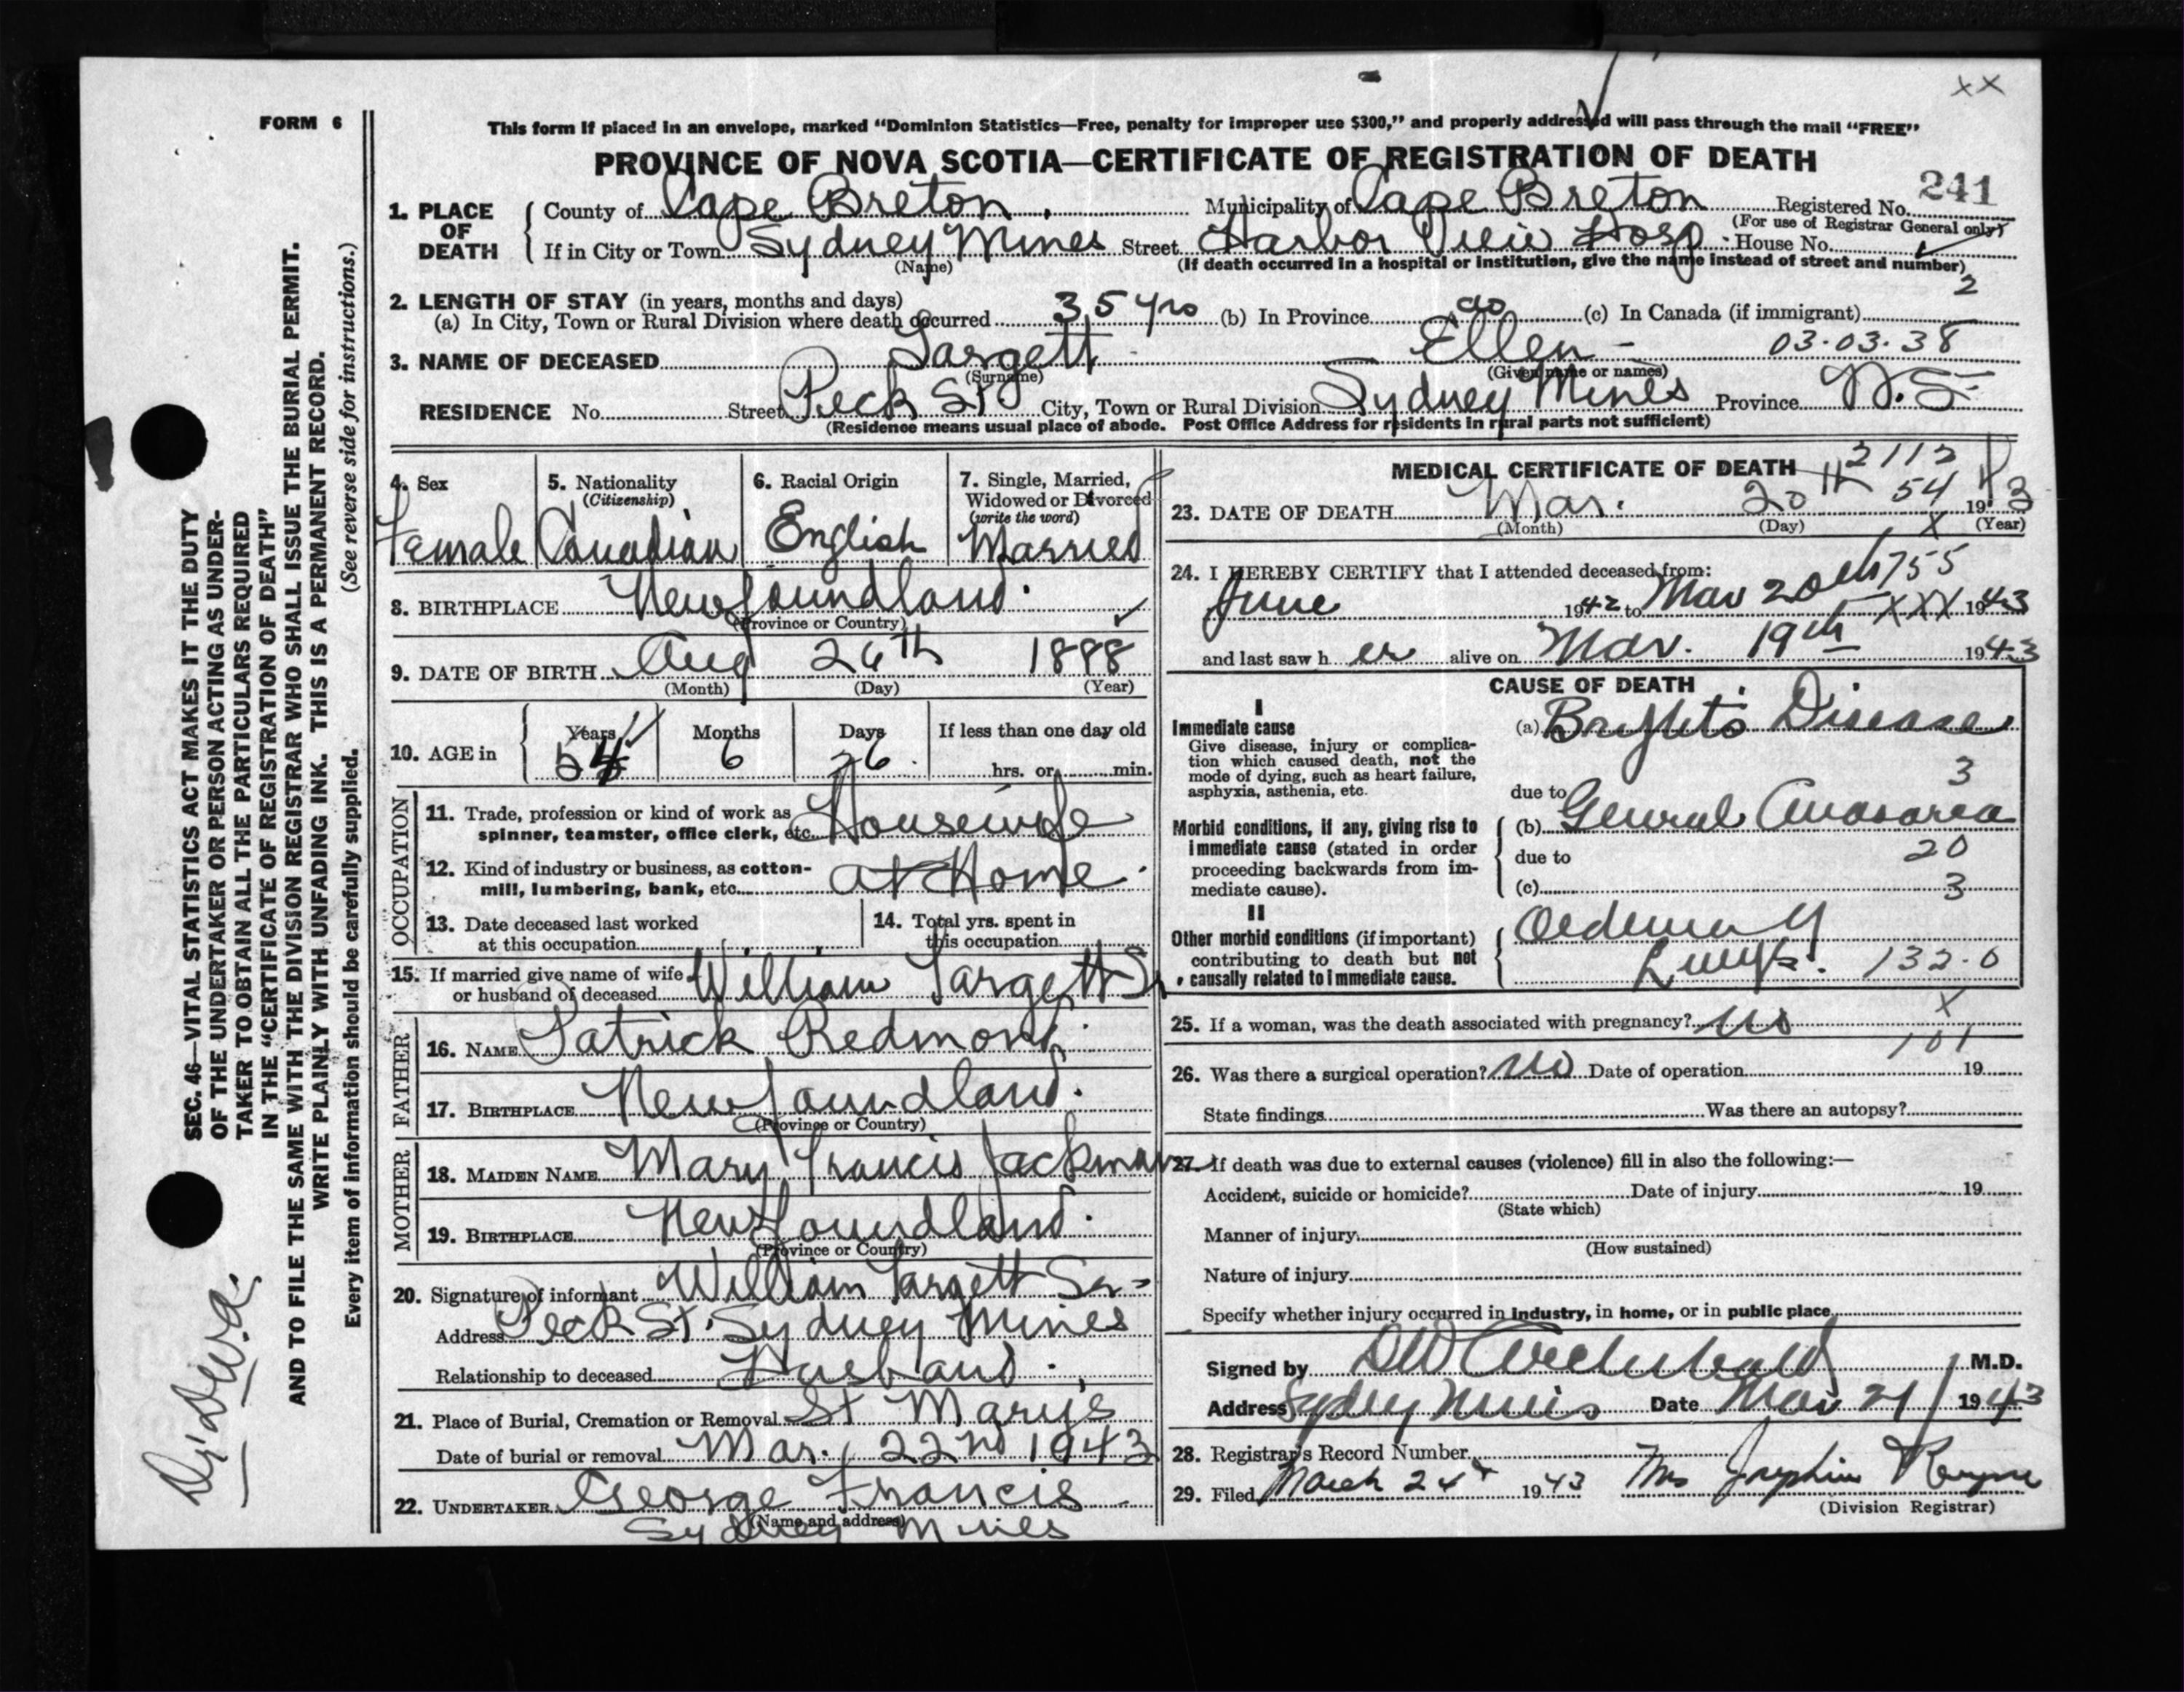 XX
FORM 6
This form if placed in an envelope, marked “Dominion Statistics—Free, penalty for improper use $300,” and properly addressed will pass through the mail “FREE”
PROVINCE OF NOVA SCOTIA—CERTIFICATE OF REGISTRATION OF DEATH
241
1. PLACE OF DEATH
County of Cape Breton Municipality of Cape Breton Registered No.
(For use of Registrar General only)
If in City or Town Sydney Mines Street Harbor View Hosp. House No.
(Name) (If death occurred in a hospital or institution, give the name instead of street and number)
2
2. LENGTH OF STAY (in years, months and days)
(a) In City, Town or Rural Division where death occurred 35 yrs (b) In Province do (c) In Canada (if immigrant)
3. NAME OF DECEASED Targett - Ellen - 03.03.38
(Surname) (Given name or names)
RESIDENCE No. Street Peck St City, Town or Rural Division Sydney Mines Province N.S.
(Residence means usual place of abode. Post Office Address for residents in rural parts not sufficient)
4. Sex
Female
5. Nationality
(Citizenship)
Canadian
6. Racial Origin
English
7. Single, Married,
Widowed or Divorced
(write the word)
Married
8. BIRTHPLACE Newfoundland
(Province or Country)
9. DATE OF BIRTH Aug 26th 1888
(Month) (Day) (Year)
10. AGE in Years Months Days If less than one day old
54 6 26 hrs. or min.
OCCUPATION
11. Trade, profession or kind of work as
spinner, teamster, office clerk, etc. Housewife
12. Kind of industry or business, as cotton-
mill, lumbering, bank, etc. at Home
13. Date deceased last worked
at this occupation
14. Total yrs. spent in
this occupation
15. If married give name of wife
or husband of deceased William Targett Sr
FATHER
16. NAME Patrick Redmond
17. BIRTHPLACE Newfoundland.
(Province or Country)
MOTHER
18. MAIDEN NAME Mary Francis Jackman
19. BIRTHPLACE Newfoundland.
(Province or Country)
20. Signature of informant William Targett Sr
Address Peck St. Sydney Mines
Relationship to deceased Husband
21. Place of Burial, Cremation or Removal St Marys
Date of burial or removal Mar. 22nd 1943
22. UNDERTAKER George Francis
(Name and address)
Sydney Mines
MEDICAL CERTIFICATE OF DEATH 2112
54
23. DATE OF DEATH Mar. 20th 1943
(Month) (Day) (Year)
X
24. I HEREBY CERTIFY that I attended deceased from: 755
June 1942 to Mar 20th XXX 1943
and last saw her alive on Mar. 19th 1943
CAUSE OF DEATH
I
Immediate cause
Give disease, injury or complica-
tion which caused death, not the
mode of dying, such as heart failure,
asphyxia, asthenia, etc.
(a) Brights Disease
3
due to
Morbid conditions, if any, giving rise to
immediate cause (stated in order
proceeding backwards from im-
mediate cause).
(b) General Anasarca
due to 20
(c) 3
II
Other morbid conditions (if important)
contributing to death but not
causally related to immediate cause.
Oedema of
Lungs. 132.0
X
25. If a woman, was the death associated with pregnancy? No
101
26. Was there a surgical operation? No Date of operation 19
State findings Was there an autopsy?
27. If death was due to external causes (violence) fill in also the following:—
Accident, suicide or homicide? Date of injury 19
(State which)
Manner of injury
(How sustained)
Nature of injury
Specify whether injury occurred in industry, in home, or in public place
Signed by DW Archibald M.D.
Address Sydney Mines Date Mar 21 1943
28. Registrar's Record Number
29. Filed March 24 1943 Mrs
(Division Registrar)
SEC. 46—VITAL STATISTICS ACT MAKES IT THE DUTY
OF THE UNDERTAKER OR PERSON ACTING AS UNDER-
TAKER TO OBTAIN ALL THE PARTICULARS REQUIRED
IN THE “CERTIFICATE OF REGISTRATION OF DEATH”
AND TO FILE THE SAME WITH THE DIVISION REGISTRAR WHO SHALL ISSUE THE BURIAL PERMIT.
WRITE PLAINLY WITH UNFADING INK. THIS IS A PERMANENT RECORD.
(See reverse side for instructions.)
Every item of information should be carefully supplied.